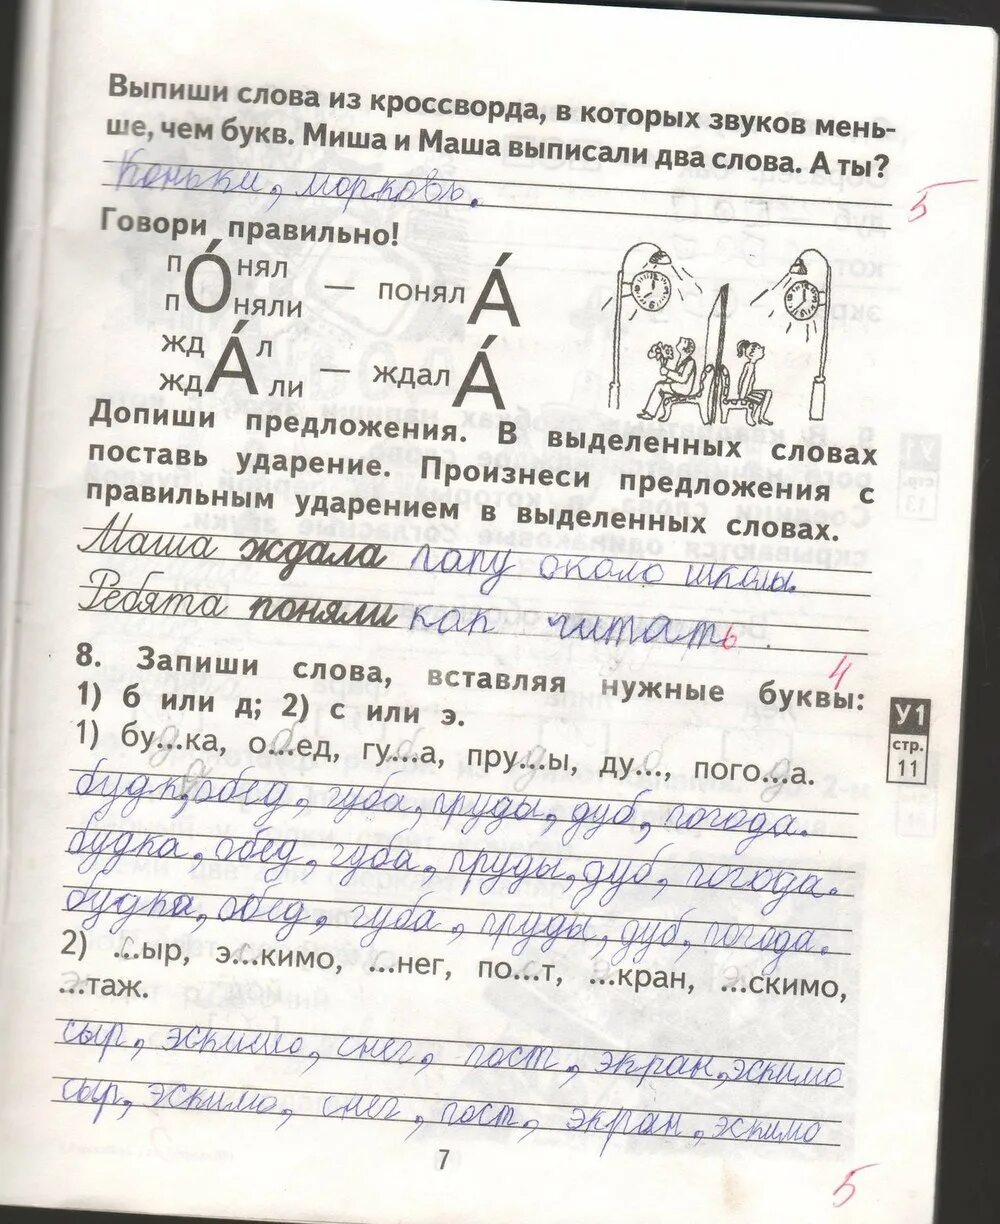 Выпиши слова из кроссворда, в которых звуков мень-
ше, чем букв. Миша и Маша выписали два слова. А ты?
Коньки, морковь.
5
Говори правильно!
пОнял
пОняли — понялА
ждАл
ждАли — ждалА
Допиши предложения. В выделенных словах
поставь ударение. Произнеси предложения с
правильным ударением в выделенных словах.
Маша ждала папу около школы.
Ребята поняли как читать.
4
8. Запиши слова, вставляя нужные буквы:
1) б или д; 2) с или э.
У1
стр.
11
1) бу...ка, о...ед, гу...а, пру...ы, ду..., пого...а.
будка, обед, губа, пруды, дуб, погода.
будка, обед, губа, пруды, дуб, погода.
будка, обед, губа, пруды, дуб, погода.
2) ...ыр, э...кимо, ...нег, по...т, ...кран, ...скимо,
...таж.
сыр, эскимо, снег, пост, экран, эскимо
сыр, эскимо, снег, пост, экран, эскимо
7
5